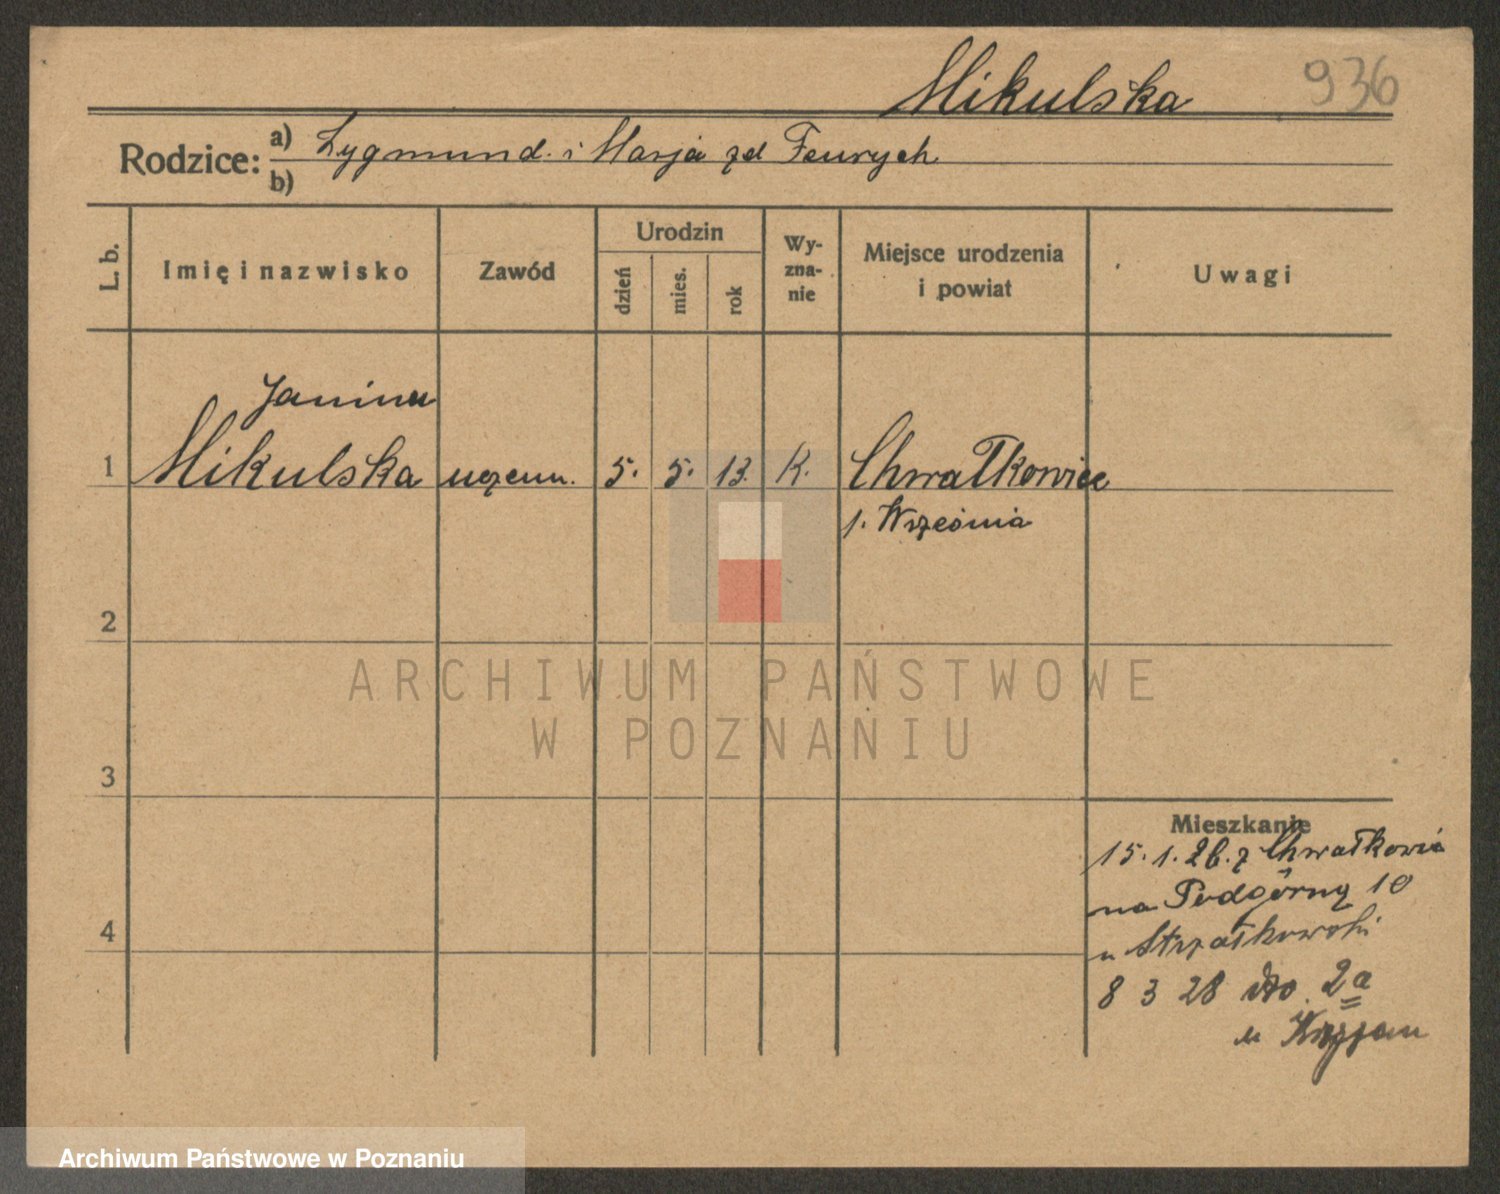 Mikulska 936
Rodzice: a) Zygmund. i Marja zd Feurych
b)
L. b. Imię i nazwisko Zawód Urodzin dzień mies. rok Wy-zna-nie Miejsce urodzenia i powiat Uwagi
Janina
1 Mikulska uczenn. 5. 5. 13. K. Chwałkowice
1. Września
2
ARCHIWUM PAŃSTWOWE
W POZNANIU
3
Mieszkanie
15. 1. 26. z Chwałkowic
na Podgórną 10
4 u Strzałkowski
8 3 28 2a
u
Archiwum Państwowe w Poznaniu